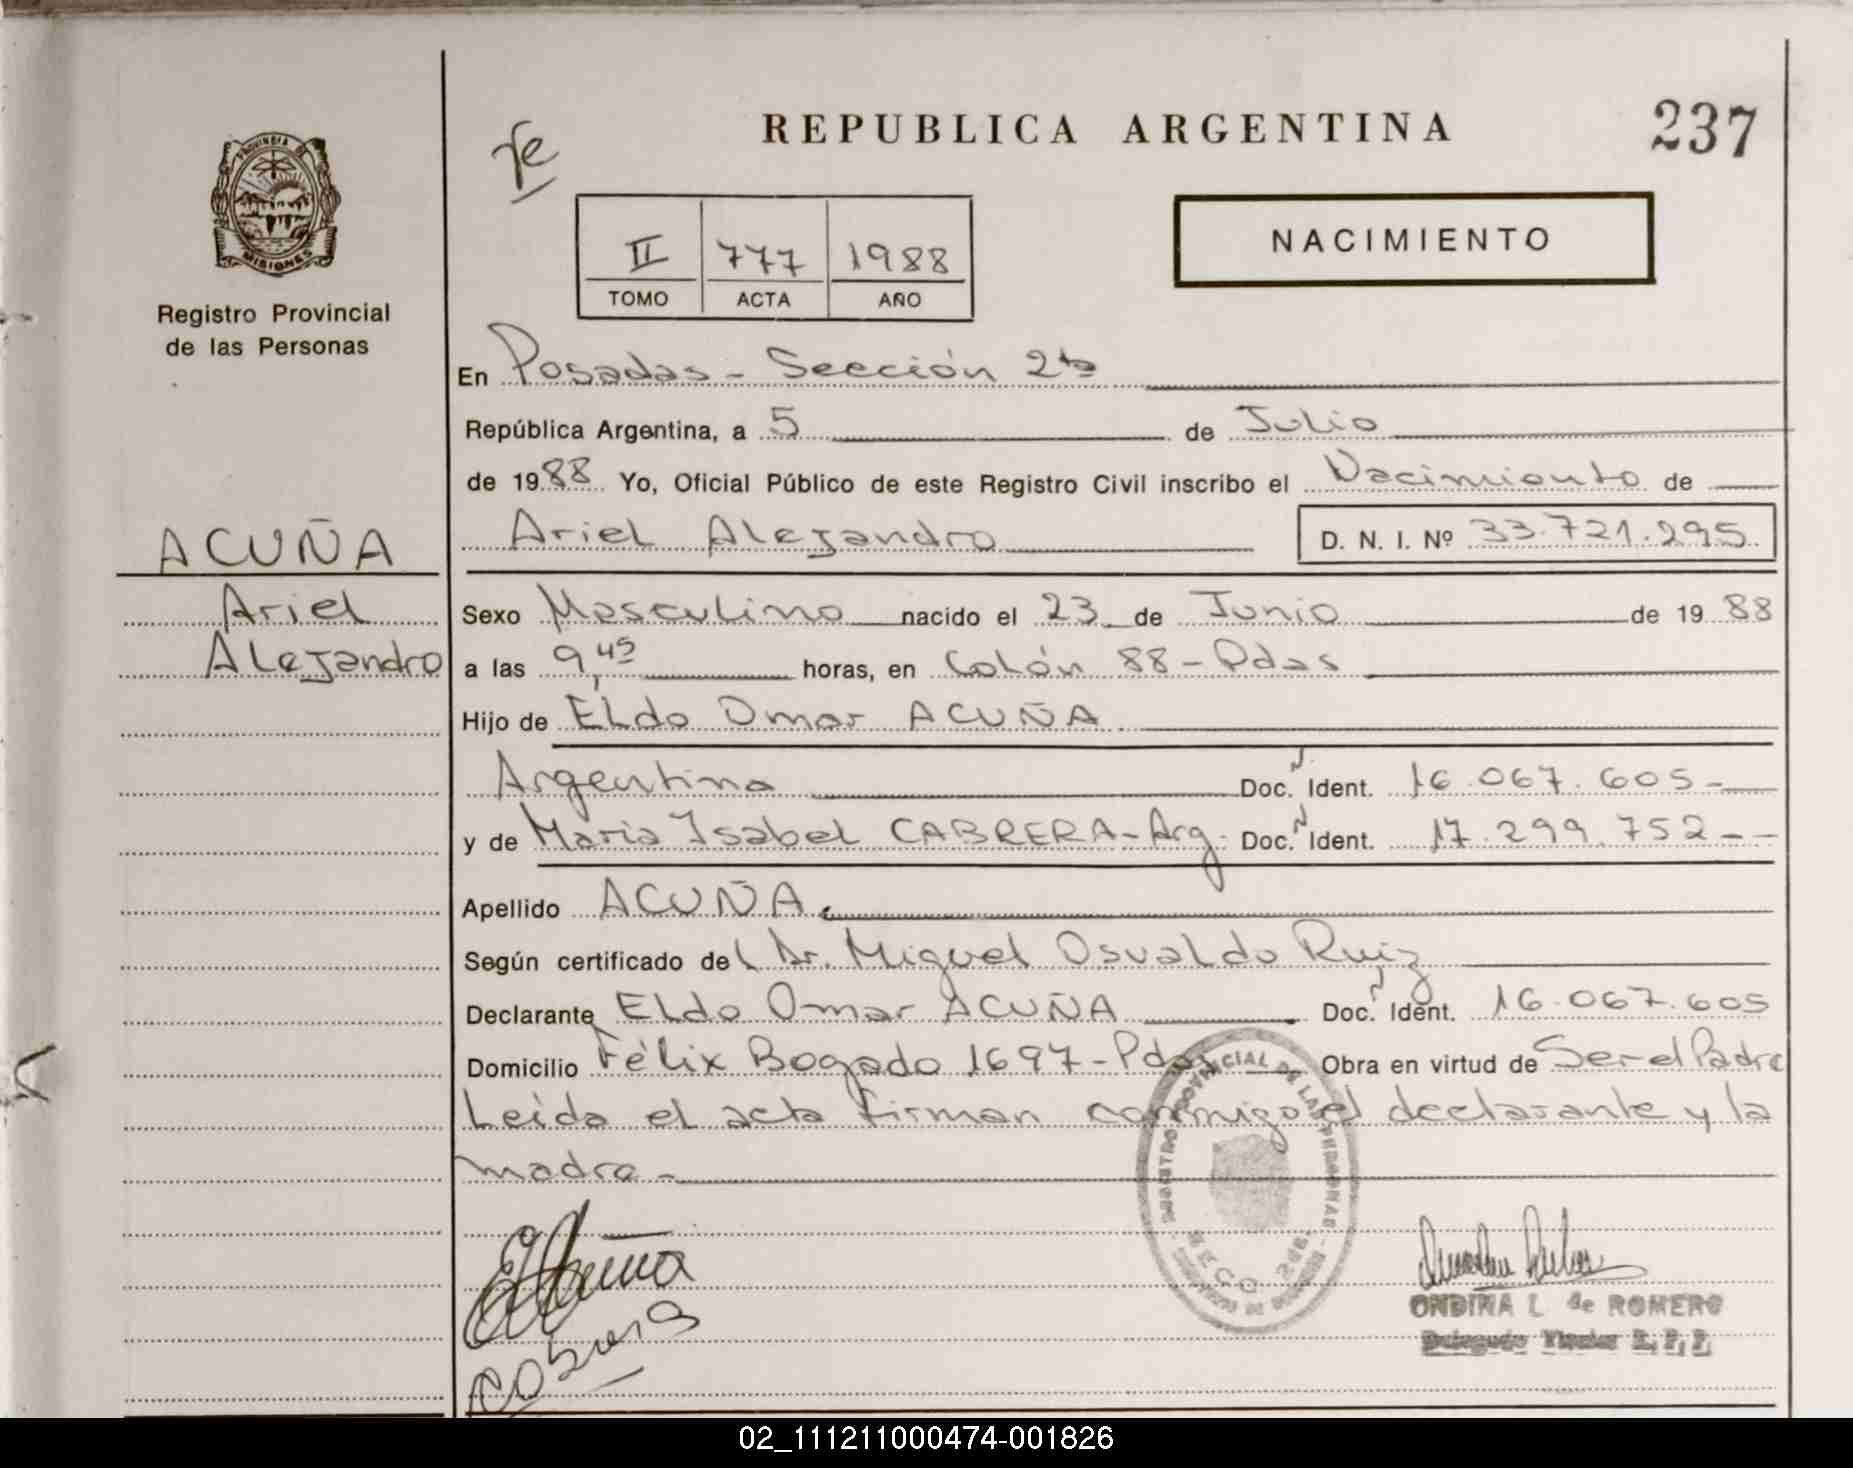 REPUBLICA ARGENTINA
237
PROVINCIA DE
MISIONES
Registro Provincial
de las Personas
II 777 1988
TOMO ACTA AÑO
NACIMIENTO
En Posadas - Sección 2da
República Argentina, a 5 de Julio
de 1988 Yo, Oficial Público de este Registro Civil inscribo el Nacimiento de
Ariel Alejandro D. N. I. Nº 33.721.295
ACUÑA
Ariel
Alejandro
Sexo Masculino nacido el 23 de Junio de 1988
a las 9,45 horas, en Colón 88 - Pdas
Hijo de Eldo Omar ACUÑA
Argentina Doc. Ident. 16.067.605 -
y de María Isabel CABRERA - Arg. Doc. Ident. 17.299.752 - -
Apellido ACUÑA
Según certificado del Dr. Miguel Osvaldo Ruiz
Declarante Eldo Omar ACUÑA Doc. Ident. 16.067.605
Domicilio Félix Bogado 1697 - Pdas Obra en virtud de Ser el Padre
Leída el acta firman conmigo el declarante y la
madre -
REGISTRO PROVINCIAL DE LAS PERSONAS
EAcuña
ONDINA L. de ROMERO
02_111211000474-001826